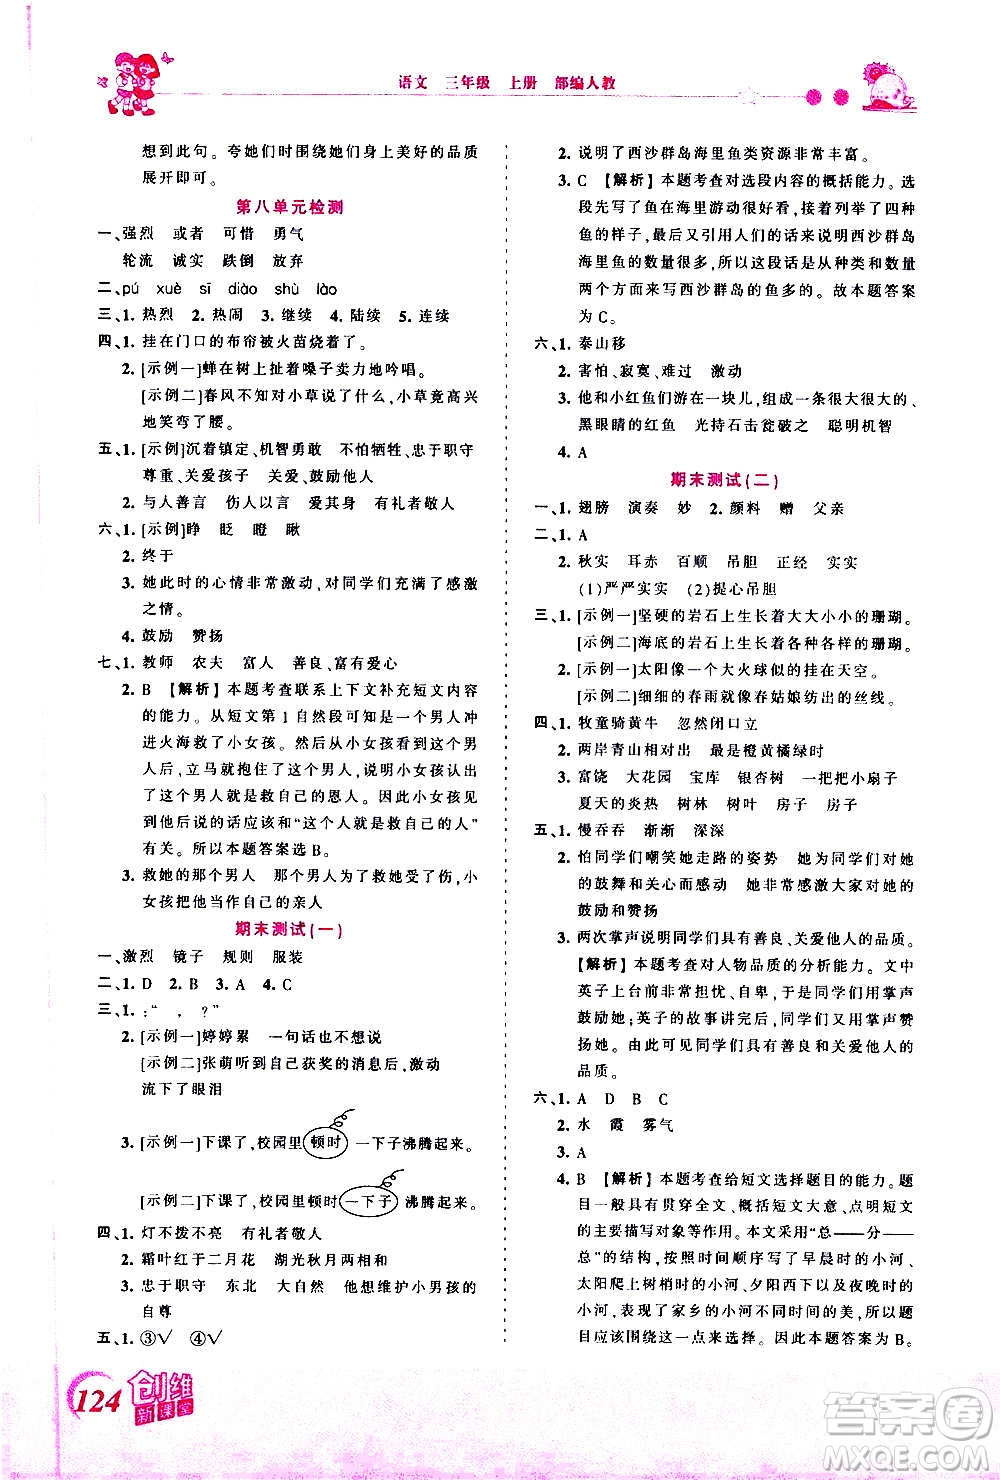 语文 三年级 上册 部编人教
想到此句。夸她们时围绕她们身上美好的品质
展开即可。
第八单元检测
一、强烈 或者 可惜 勇气
轮流 诚实 跌倒 放弃
二、pú xuè sī diào shù lào
三、1. 热烈 2. 热闹 3. 继续 4. 陆续 5. 连续
四、1. 挂在门口的布帘被火苗烧着了。
2. [示例一]蝉在树上扯着嗓子卖力地吟唱。
[示例二]春风不知对小草说了什么,小草竟高兴
地笑弯了腰。
五、1. [示例]沉着镇定、机智勇敢 不怕牺牲、忠于职守
尊重、关爱孩子 关爱、鼓励他人
2. 与人善言 伤人以言 爱其身 有礼者敬人
六、1. [示例]睁 眨 瞪 瞅
2. 终于
3. 她此时的心情非常激动,对同学们充满了感激
之情。
4. 鼓励 赞扬
七、1. 教师 农夫 富人 善良、富有爱心
2. B 【解析】本题考查联系上下文补充短文内容
的能力。从短文第 1 自然段可知,一个男人冲
进火海救了小女孩。然后小女孩看到这个男
人后,立马就抱住了这个男人,说明小女孩认出
了这个男人就是救自己的恩人。因此小女孩见
到他后说的话应该和“这个人就是救自己的人”
有关。所以本题答案选 B。
3. 救她的那个男人 那个男人救了她受了伤,小
女孩把他当作自己的亲人
期末测试(一)
一、激烈 镜子 规则 服装
二、1. D 2. B 3. A 4. C
三、1. :“ , ?”
2. [示例一]婷婷累 一句话也不想说
[示例二]张萌听到自己获奖的消息后,激动
流下了眼泪
3. [示例一]下课了,校园里顿时一下子沸腾起来。
[示例二]下课了,校园里顿时一下子沸腾起来。
四、1. 灯不拨不亮 有礼者敬人
2. 霜叶红于二月花 湖光秋月两相和
3. 忠于职守 东北 大自然 他想维护小男孩的
自尊
五、1. ③√ ④√
2. 说明了西沙群岛海里鱼类资源非常丰富。
3. C 【解析】本题考查对选段内容的概括能力。选
段先写了鱼在海里游动的好看,接着列举了四种
鱼的样子,最后又引用人们的话来说明西沙群岛
海里鱼的数量很多,所以这段话是从种类和数量
两个方面来写西沙群岛的鱼多的。故本题答案
为 C。
六、1. 泰山移
2. 害怕、寂寞、难过 激动
3. 他和小红鱼们游在一块儿,组成一条很大很大的、
黑眼睛的红鱼 光持石击瓮破之 聪明机智
4. A
期末测试(二)
一、1. 翅膀 演奏 妙 2. 颜料 赠 父亲
二、1. A
2. 秋实 耳赤 百顺 吊胆 正经 实实
(1)严严实实 (2)提心吊胆
三、1. [示例一]坚硬的岩石上生长着大大小小的珊瑚。
[示例二]海底的岩石上生长着各种各样的珊瑚。
2. [示例一]太阳像一个大火球似的挂在天空。
[示例二]细细的春雨就像春姑娘纺出的丝线。
四、1. 牧童骑黄牛 忽然闭口立
2. 两岸青山相对出 最是橙黄橘绿时
3. 富饶 大花园 宝库 银杏树 一把把小扇子
夏天的炎热 树林 树叶 房子 房子
五、1. 慢吞吞 渐渐 深深
2. 怕同学们嘲笑她走路的姿势 她为同学们对她
的鼓舞和关心而感动 她非常感激大家对她的
鼓励和赞扬
3. 两次掌声说明同学们具有善良、关爱他人的品质。
【解析】本题考查对人物品质的分析能力。文中
英子上台前非常担忧、自卑,于是同学们用掌声
鼓励她;英子的故事讲完后,同学们又用掌声赞
扬她。由此可见同学们具有善良和关爱他人的
品质。
六、1. A D B C
2. 水 霞 雾气
3. A
4. B 【解析】本题考查给短文选择题目的能力。题
目一般具有贯穿全文、概括短文大意、点明短文
的主要描写对象等作用。本文采用“总——分——
总”的结构,按照时间顺序写了早晨时的小河、
太阳爬上树梢时的小河、夕阳西下以及夜晚时的
小河,主要描写了家乡的小河不同时间的美,所以
题目应该围绕这一点来选择。因此本题答案为 B。
124
创维
新课堂
答案圈
MXQE.COM